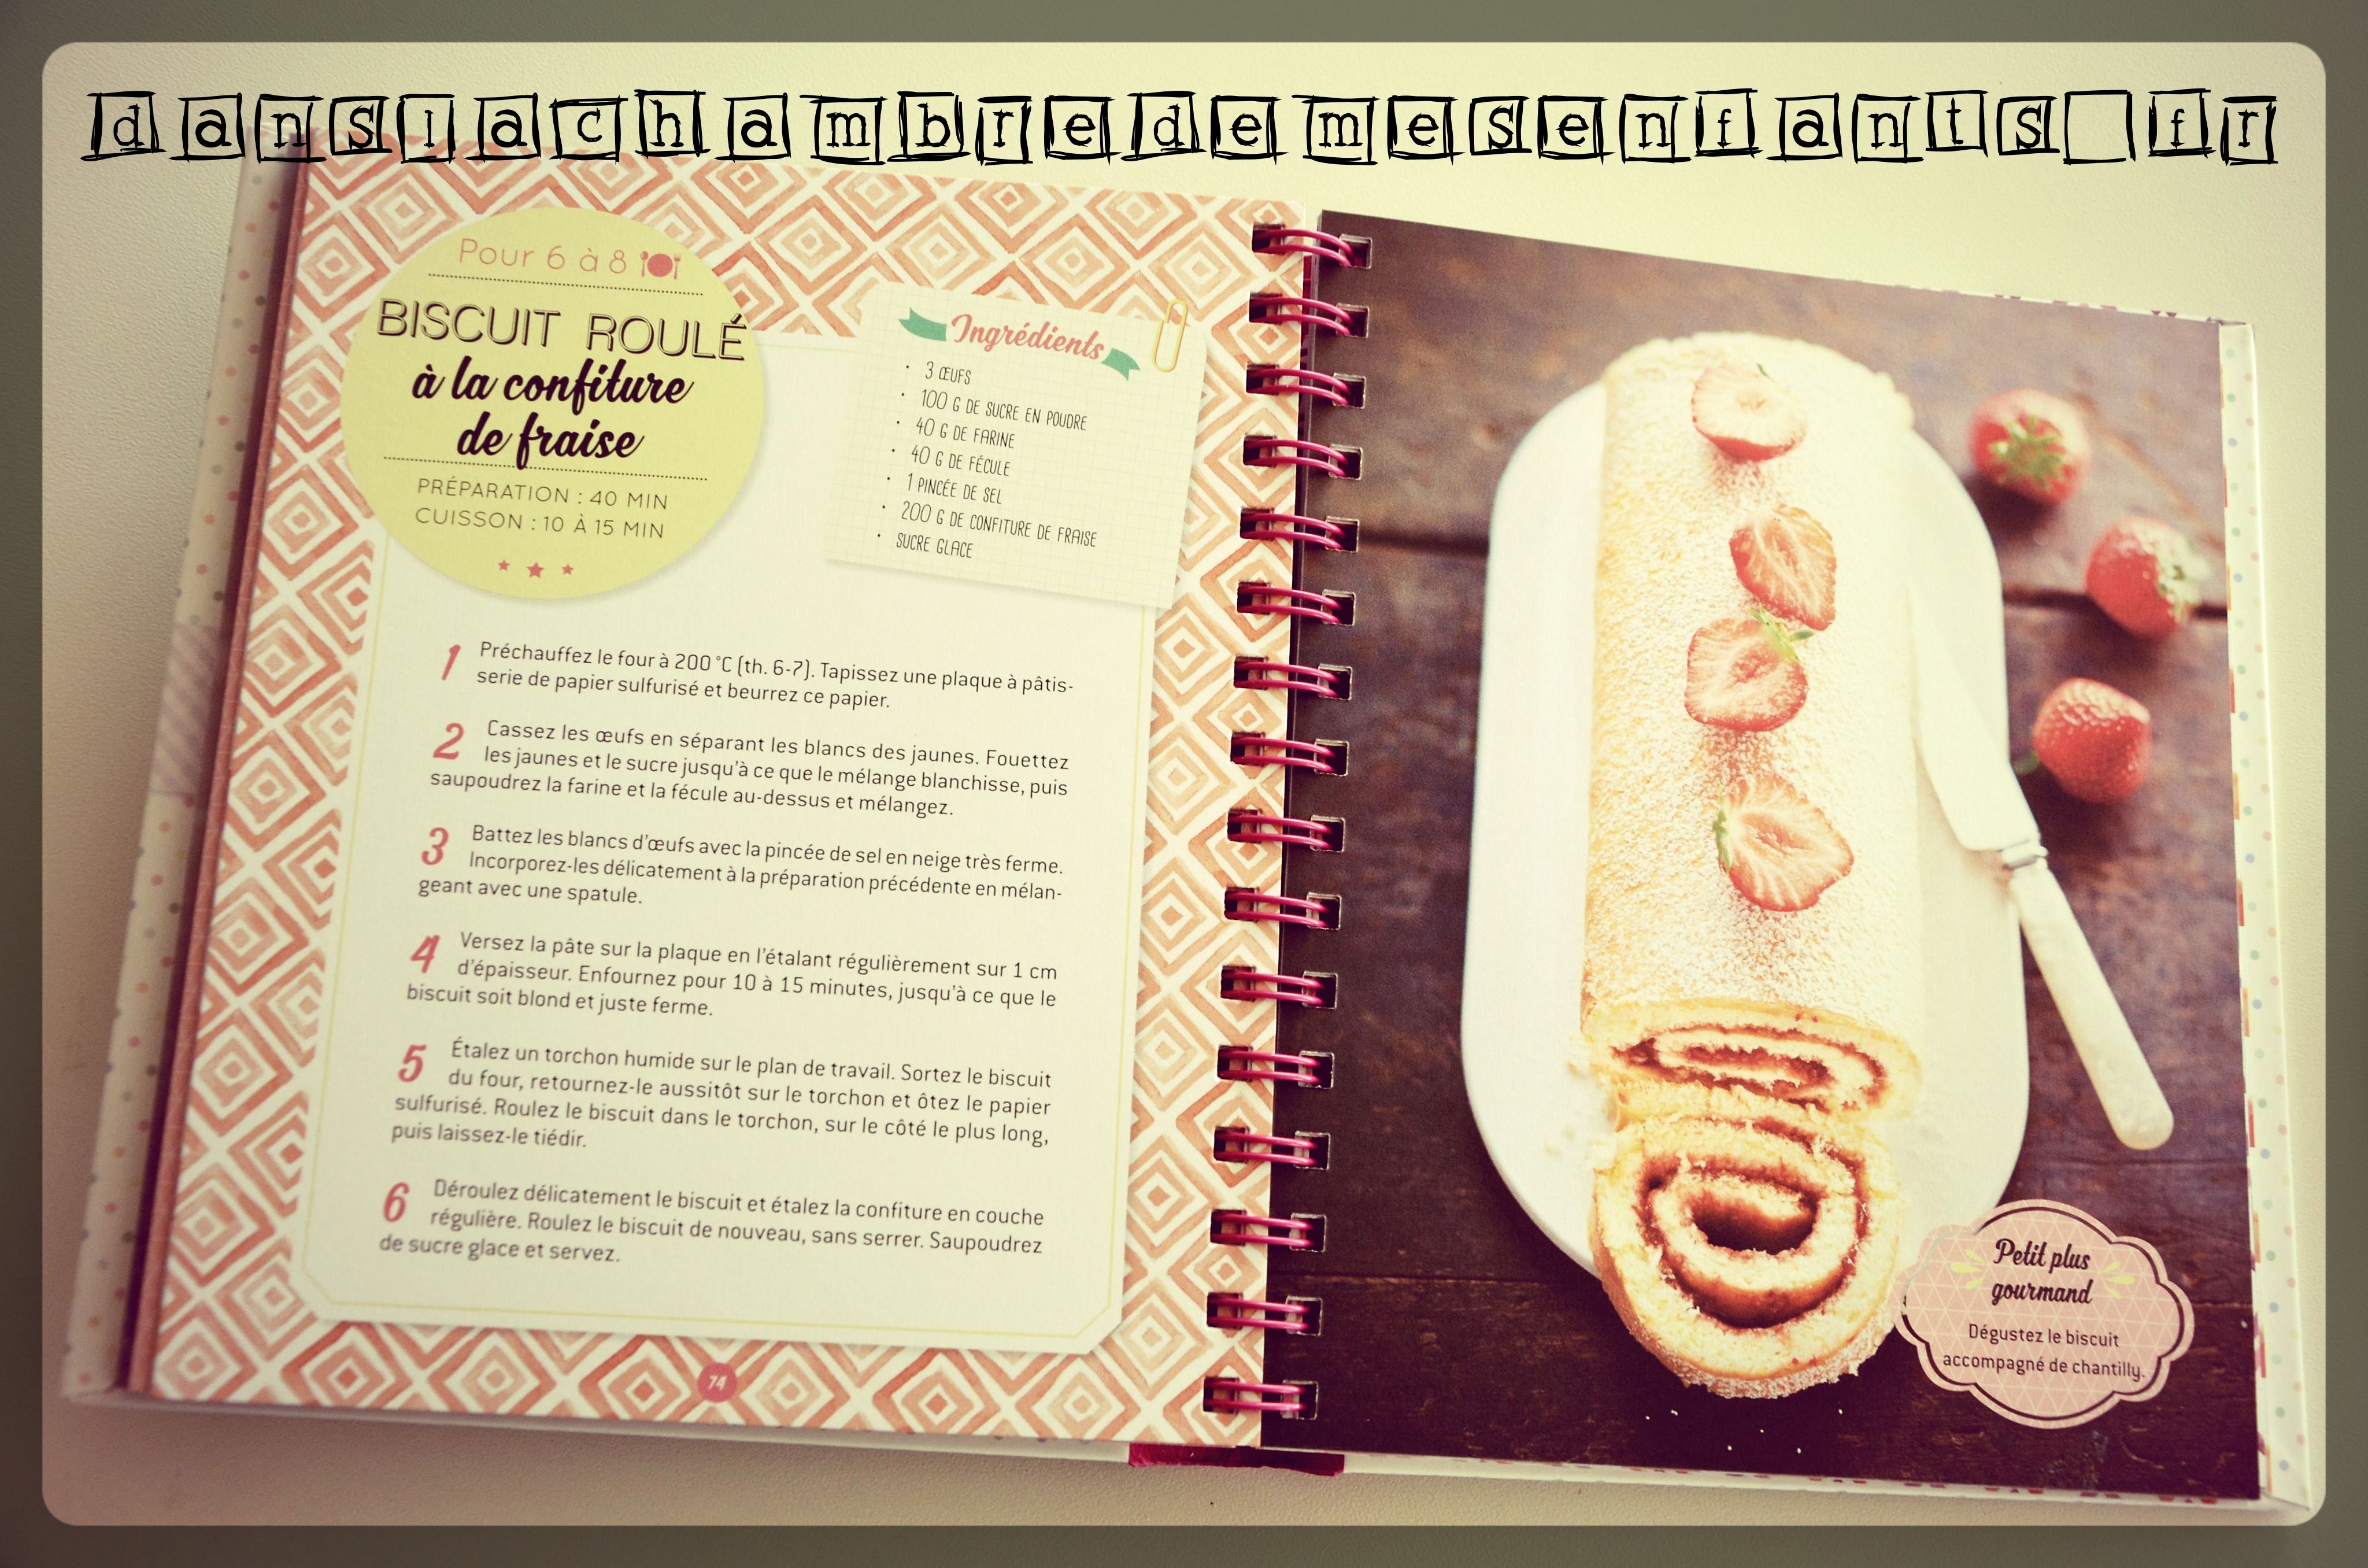 danslachambredemesenfants fr
Pour 6 à 8
BISCUIT ROULÉ
à la confiture
de fraise
PRÉPARATION : 40 MIN
CUISSON : 10 À 15 MIN
Ingrédients
• 3 ŒUFS
• 100 G DE SUCRE EN POUDRE
• 40 G DE FARINE
• 40 G DE FÉCULE
• 1 PINCÉE DE SEL
• 200 G DE CONFITURE DE FRAISE
• SUCRE GLACE
1 Préchauffez le four à 200 °C (th. 6-7). Tapissez une plaque à pâtis-
serie de papier sulfurisé et beurrez ce papier.
2 Cassez les œufs en séparant les blancs des jaunes. Fouettez
les jaunes et le sucre jusqu'à ce que le mélange blanchisse, puis
saupoudrez la farine et la fécule au-dessus et mélangez.
3 Battez les blancs d'œufs avec la pincée de sel en neige très ferme.
Incorporez-les délicatement à la préparation précédente en mélan-
geant avec une spatule.
4 Versez la pâte sur la plaque en l'étalant régulièrement sur 1 cm
d'épaisseur. Enfournez pour 10 à 15 minutes, jusqu'à ce que le
biscuit soit blond et juste ferme.
5 Étalez un torchon humide sur le plan de travail. Sortez le biscuit
du four, retournez-le aussitôt sur le torchon et ôtez le papier
sulfurisé. Roulez le biscuit dans le torchon, sur le côté le plus long,
puis laissez-le tiédir.
6 Déroulez délicatement le biscuit et étalez la confiture en couche
régulière. Roulez le biscuit de nouveau, sans serrer. Saupoudrez
de sucre glace et servez.
74
Petit plus
gourmand
Dégustez le biscuit
accompagné de chantilly.